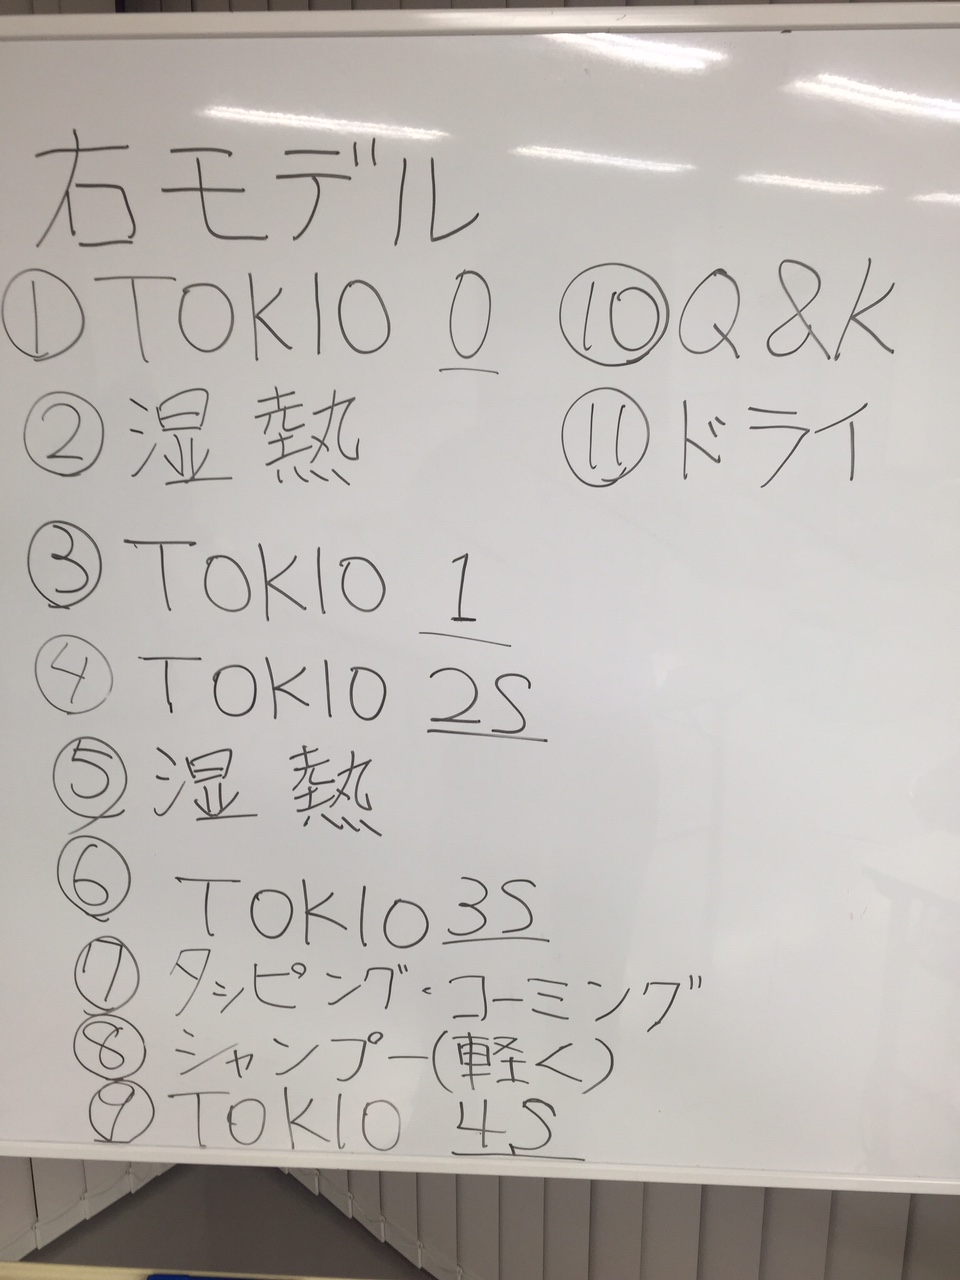 右モデル
① TOKIO 0
② 湿熱
③ TOKIO 1
④ TOKIO 2S
⑤ 湿熱
⑥ TOKIO 3S
⑦ タッピング・コーミング
⑧ シャンプー(軽く)
⑨ TOKIO 4S
⑩ Q&K
⑪ ドライ